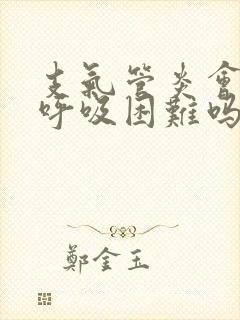 支氣管炎會
呼吸困難嗎
鄭金玉